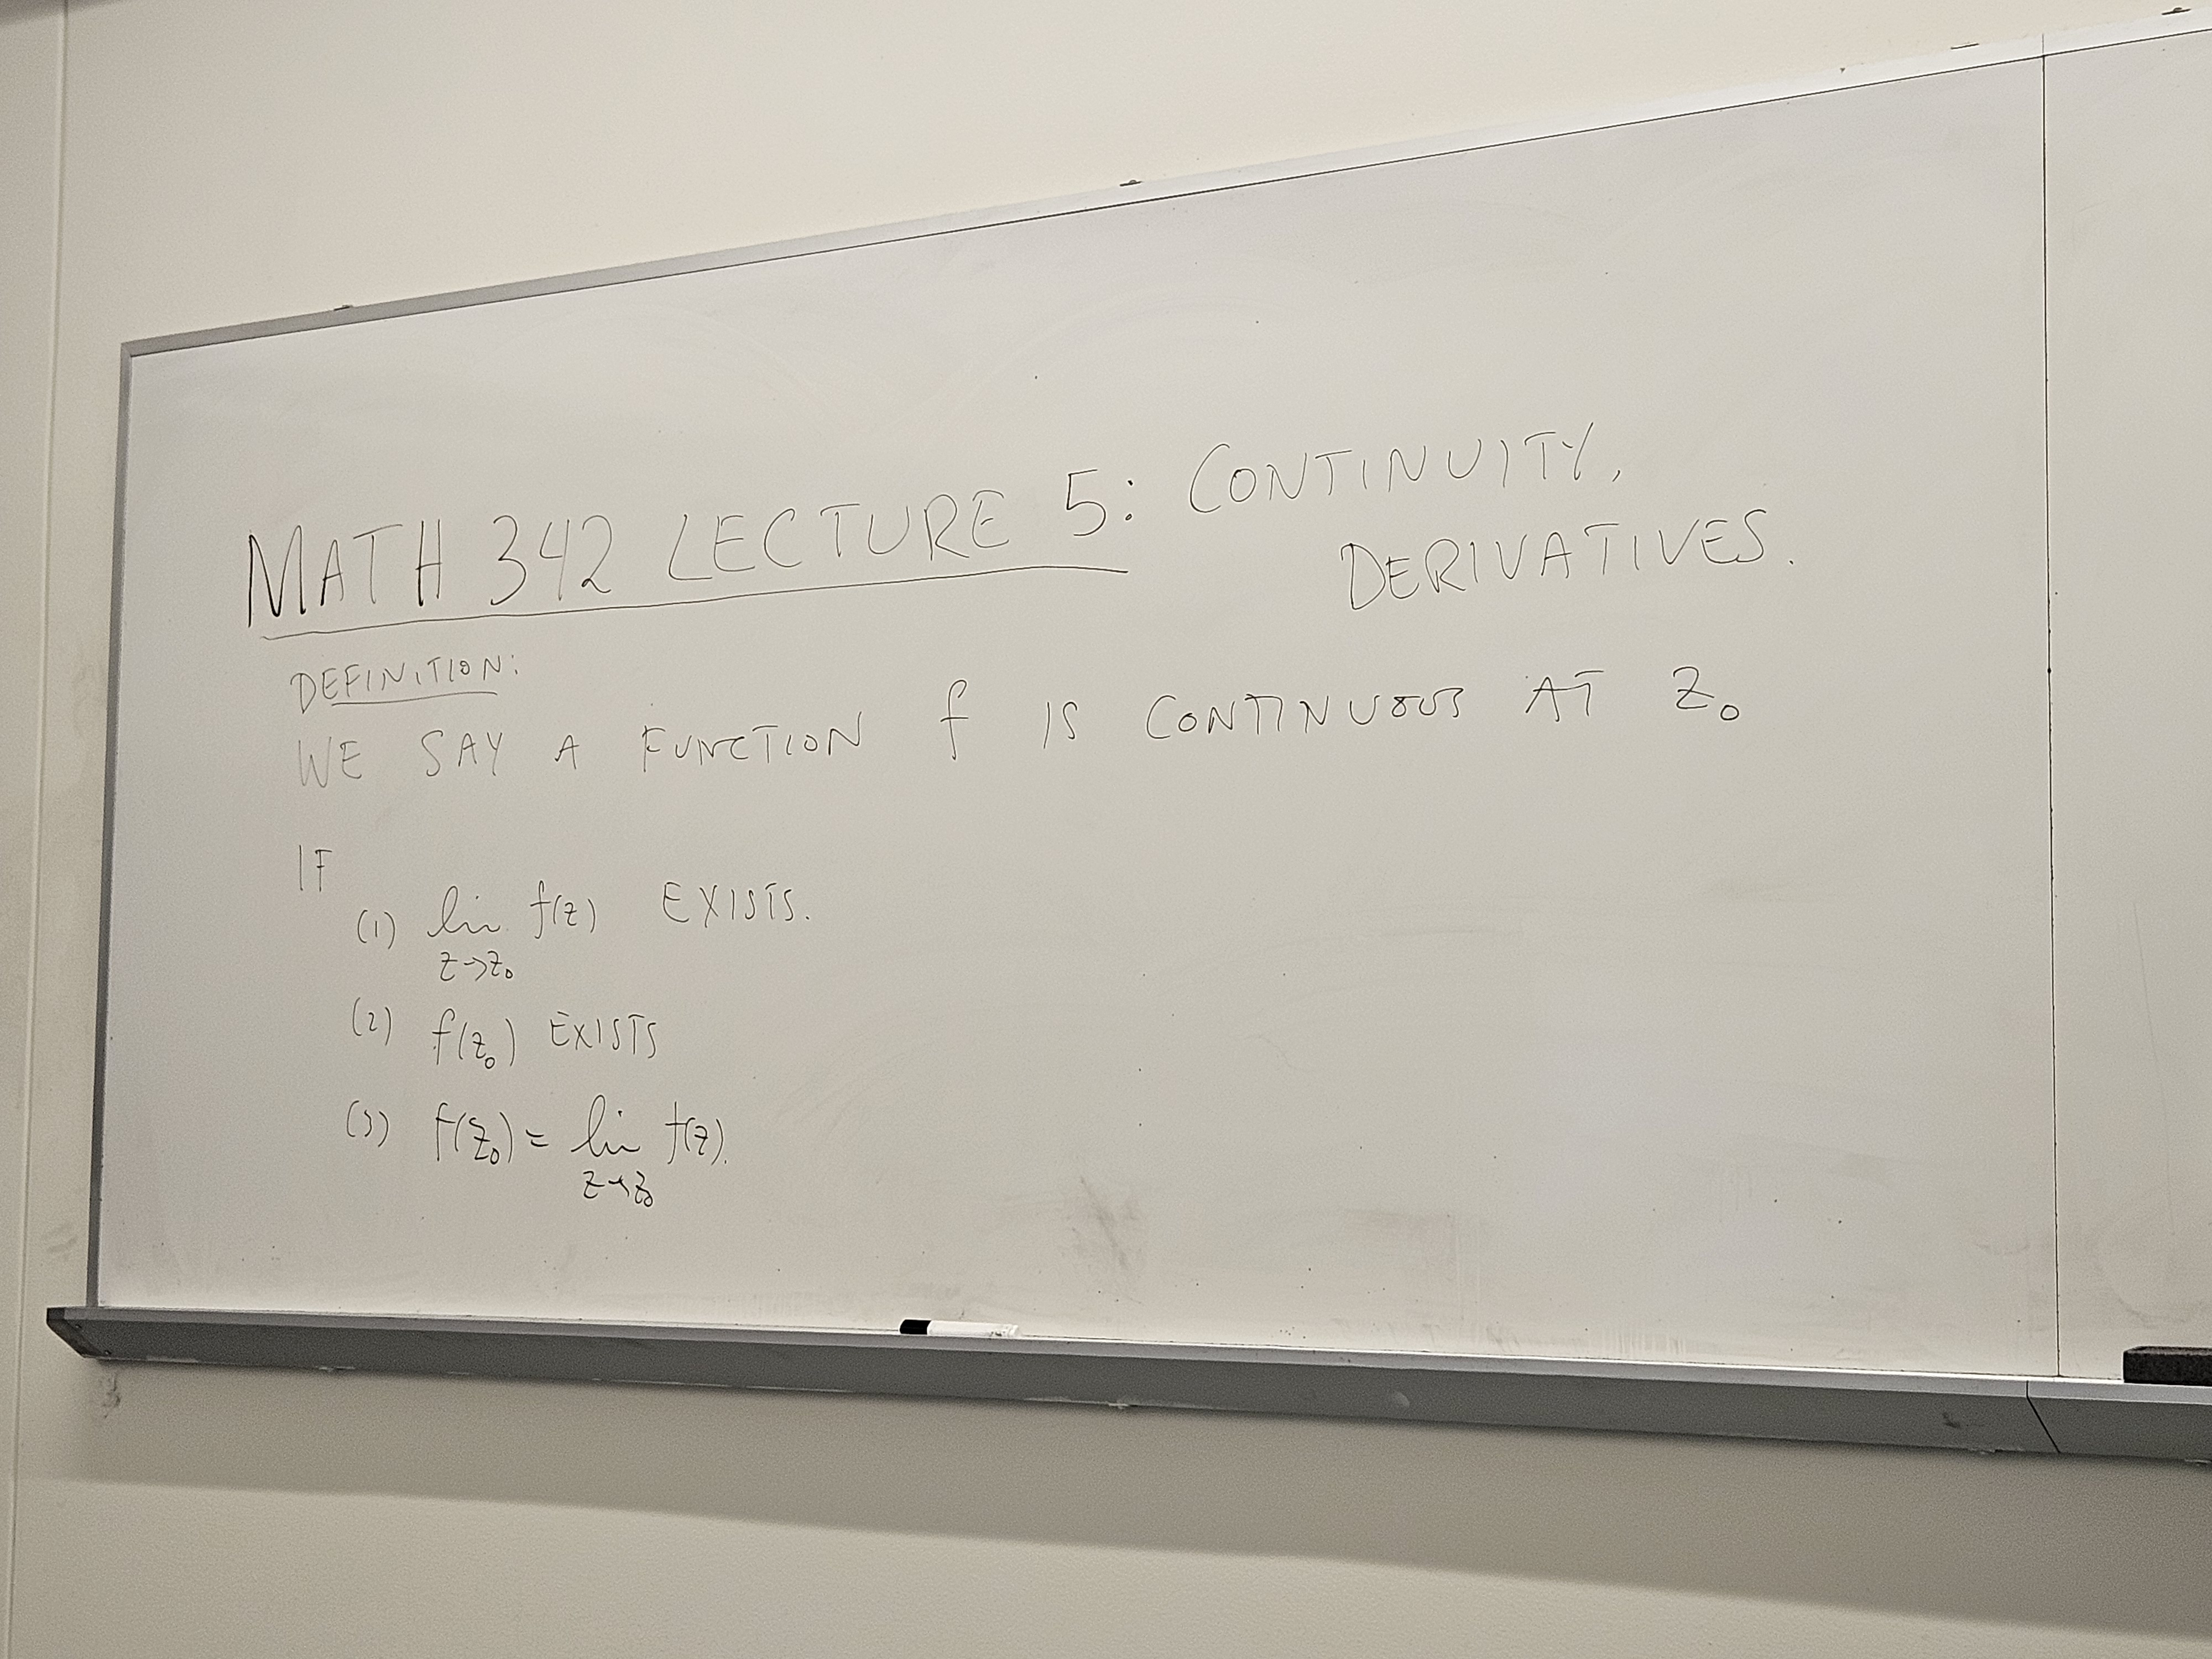 MATH 342 LECTURE 5: CONTINUITY,
DERIVATIVES.
DEFINITION:
WE SAY A FUNCTION f IS CONTINUOUS AT z₀
IF
(1) lim f(z) EXISTS.
z→z₀
(2) f(z₀) EXISTS
(3) f(z₀) = lim f(z).
z→z₀